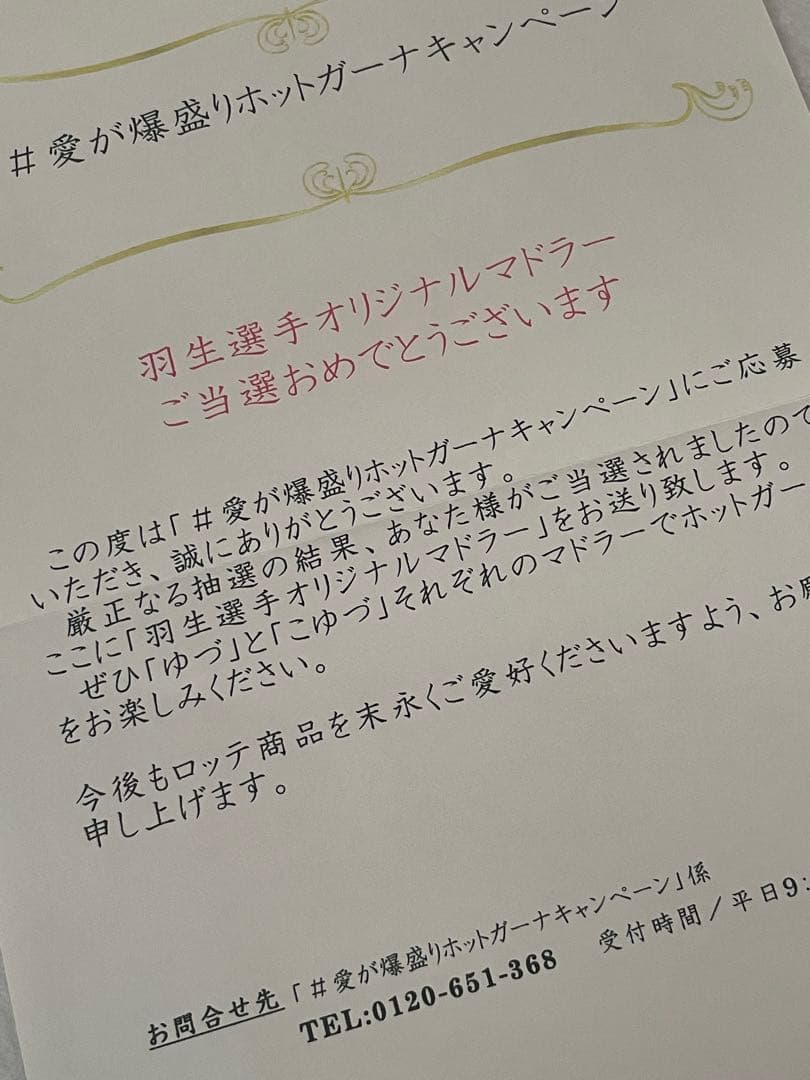 #愛が爆盛りホットガーナキャンペーン
羽生選手オリジナルマドラー
ご当選おめでとうございます
この度は「#愛が爆盛りホットガーナキャンペーン」にご応募
いただき、誠にありがとうございます。
厳正なる抽選の結果、あなた様がご当選されましたので
ここに「羽生選手オリジナルマドラー」をお送り致します。
ぜひ「ゆづ」と「こゆづ」それぞれのマドラーでホットガー
をお楽しみください。
今後もロッテ商品を末永くご愛好くださいますよう、お願
申し上げます。
お問合せ先「#愛が爆盛りホットガーナキャンペーン」係
TEL:0120-651-368 受付時間/平日9: